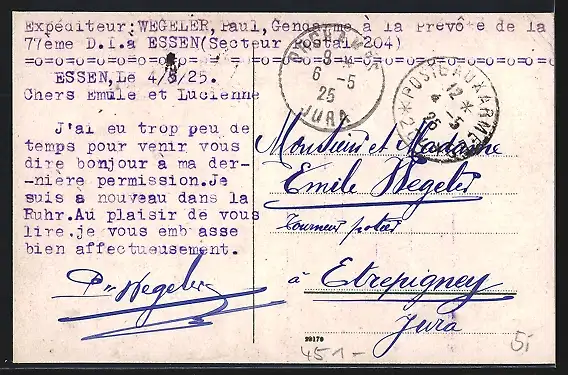 Expéditeur:WEGELER,Paul,Gendarme à la Prévôté de la
77ème D.I.à ESSEN(Secteur Postal 204)
=o=o=o=o=o=o=o=o=o=o=o=o=o=o=o=o=o=o=
ESSEN,Le 4/5/25.
Chers Emile et Lucienne
J'ai eu trop peu de
temps pour venir vous
dire bonjour à ma der-
-nière permission.Je
suis à nouveau dans la
Ruhr.Au plaisir de vous
lire.je vous emb asse
bien affectueusement.
P Wegeler
8
6 -5
25
JURA
POSTE AUX ARMEES
12
4 -5
25
Monsieur et Madame
Emile Wegeler
Tourneur potier
à Etrepigney
Jura
29170
451-
5i